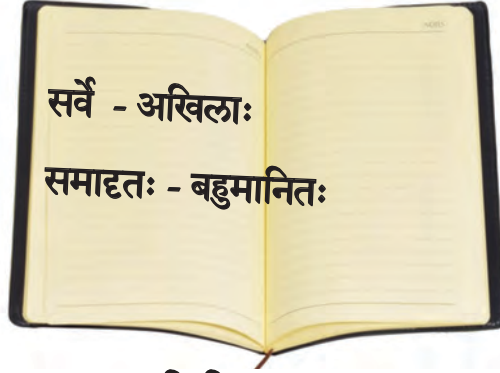 सर्वे - अखिलाः
समादृतः - बहुमानितः